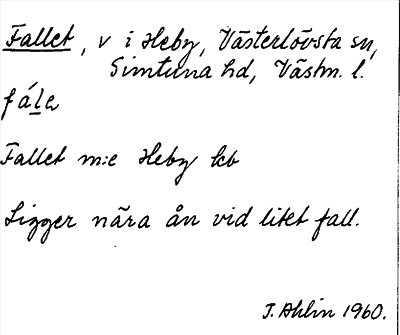 Fallet, v i Heby, Västerlövsta sn,
Simtuna hd, Västm. l.
fála
Fallet m:e Heby kb
Ligger nära ån vid litet fall.
J. Ahlin 1960.